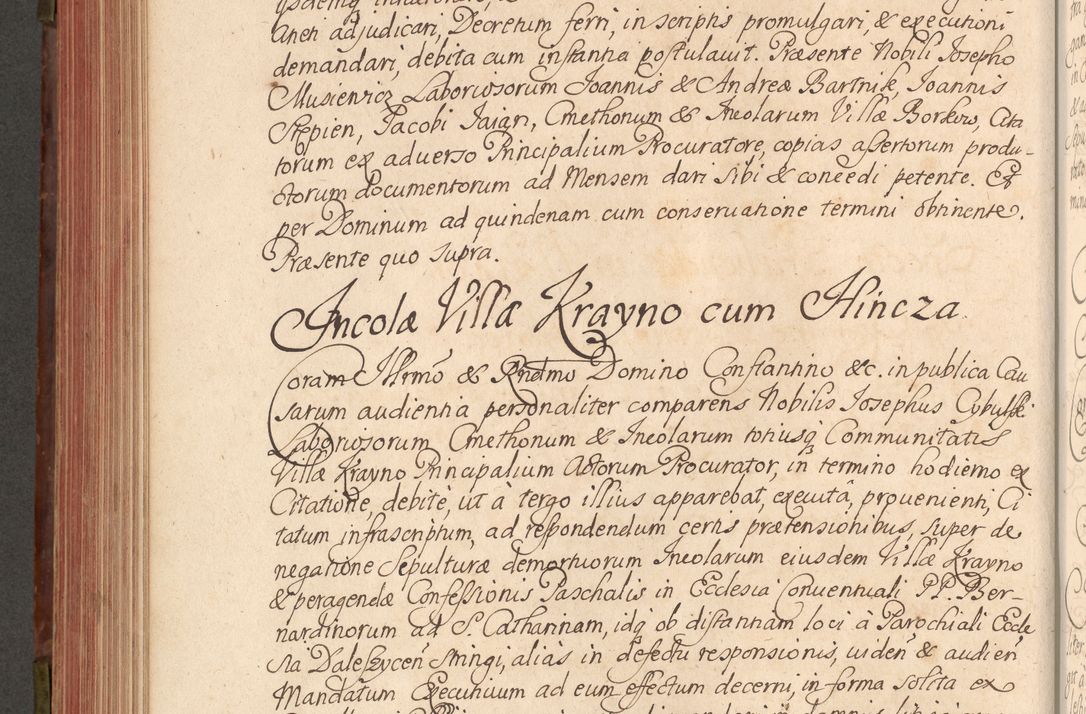 aneti adjudicari, Decretum ferri, in scriptis promulgari, & executioni
demandari, debita cum instantia postulavit. Præsente Nobili Josepho
Musiewicz Laboriosorum Joannis & Andreæ Bartnik, Joannis
Stępien, Jacobi Jaiar, Cmethonum & Incolarum Villæ Borkow, Cita
torum ex adverso Principalium Procuratore, copias assertorum produ-
ctorum documentorum ad Mensem dari sibi & concedi petente. Et
per Dominum ad quindenam cum conservatione termini obtinente.
Præsente quo supra.
Incolæ Villæ Krayno cum Hincza.
Coram Illrmo & Rndmo Domino Constantino &c. in publica Cau
sarum audientia personaliter comparens Nobilis Josephus Cybulski
Laboriosorum Cmethonum & Incolarum totiusq Communitatis
Villæ Krayno Principalium Actorum Procurator, in termino hodierno ex
Citatione, debitè, ut à tergo illius apparebat, executâ, provenienti, Ci
tatum infrascriptum, ad respondendum certis prætensionibus, super de
negatione Sepulturæ demortuorum Incolarum eiusdem Villæ Krayno
& peragendæ Confessionis Paschalis in Ecclesia Conventuali P.P. Ber-
nardinorum ad S. Catharinam, idq ob distantiam loci à Parochiali Eccle
sia Daleszycen stringi, alias in defectu responsionis, viden & audien
Mandatum Executivum ad eum effectum decerni, in forma solita ex